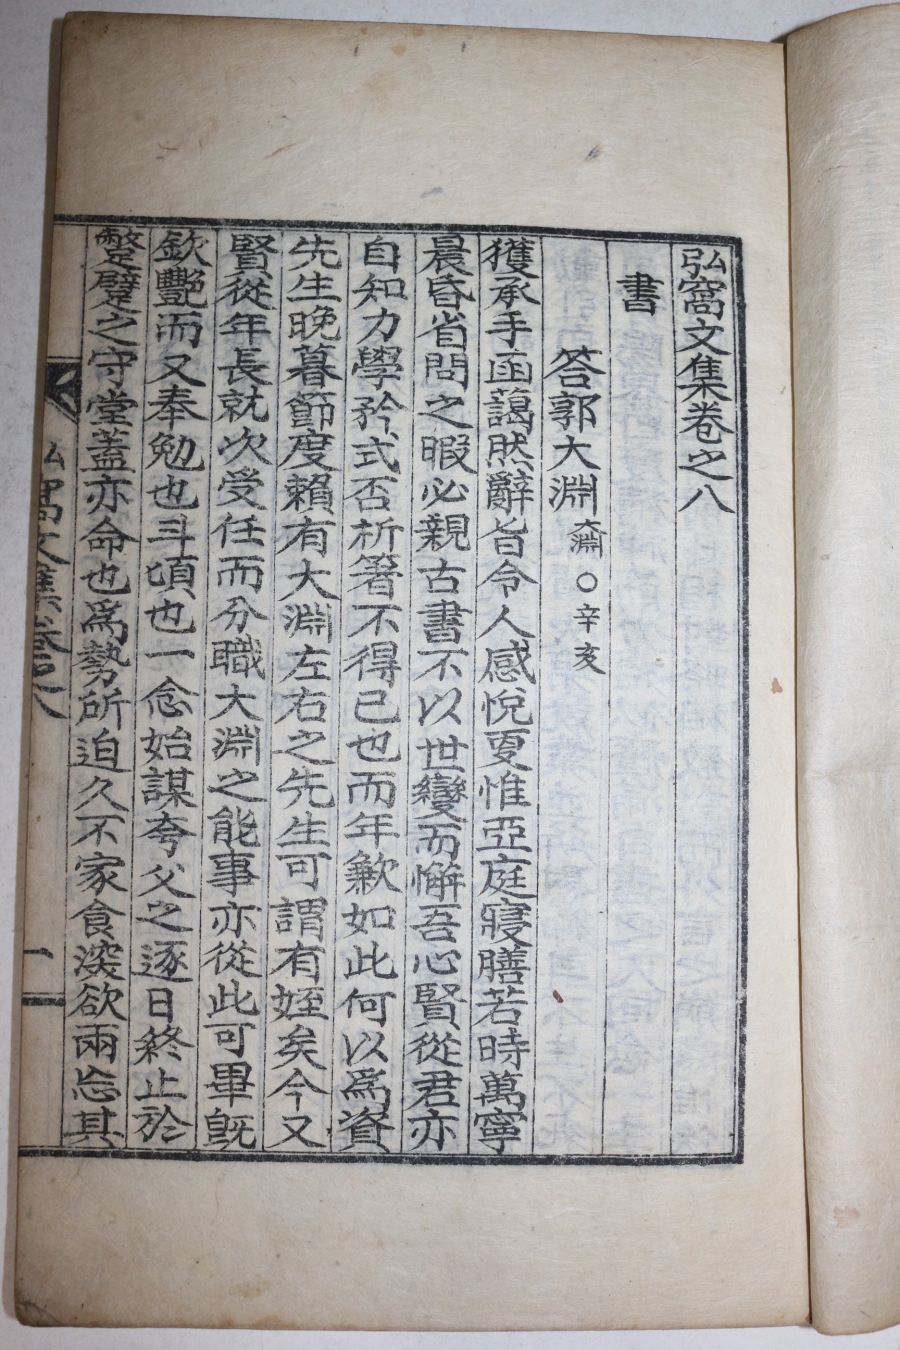 弘窩文集卷之八
書
答郭大淵 大淵 ○辛亥
獲承手函藹然辭旨令人感悅更惟亞庭寢膳若時萬寧
晨昏省問之暇必親古書不以世變而懈吾心賢從君亦
自知力學矜式否析箸不得已也而年歉如此何以爲資
先生晩暮節度賴有大淵左右之先生可謂有姪矣今又
賢從年長就次受任而分職大淵之能事亦從此可畢旣
欽艷而又奉勉也斗頃也一念始謀夸父之逐日終止於
蹩躄之守堂蓋亦命也爲勢所迫久不家食深欲兩忘其
弘窩文集卷之八
一